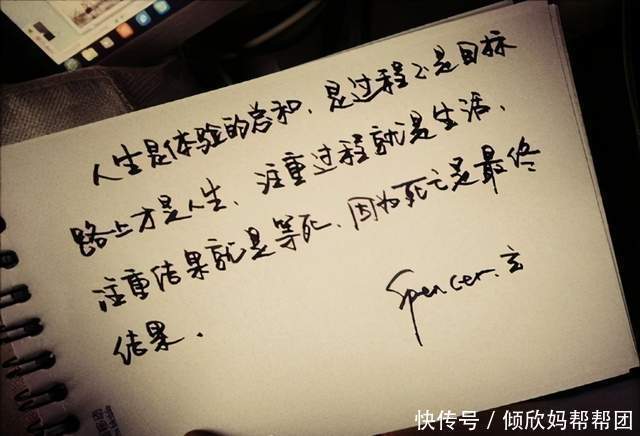 人生是体验的总和、是过程不是目标
路上才是人生、注重过程就是生活、
注重结果就是等死、因为死亡是最终
结果.
Spencer.玄
快传号／倾欣妈帮帮团